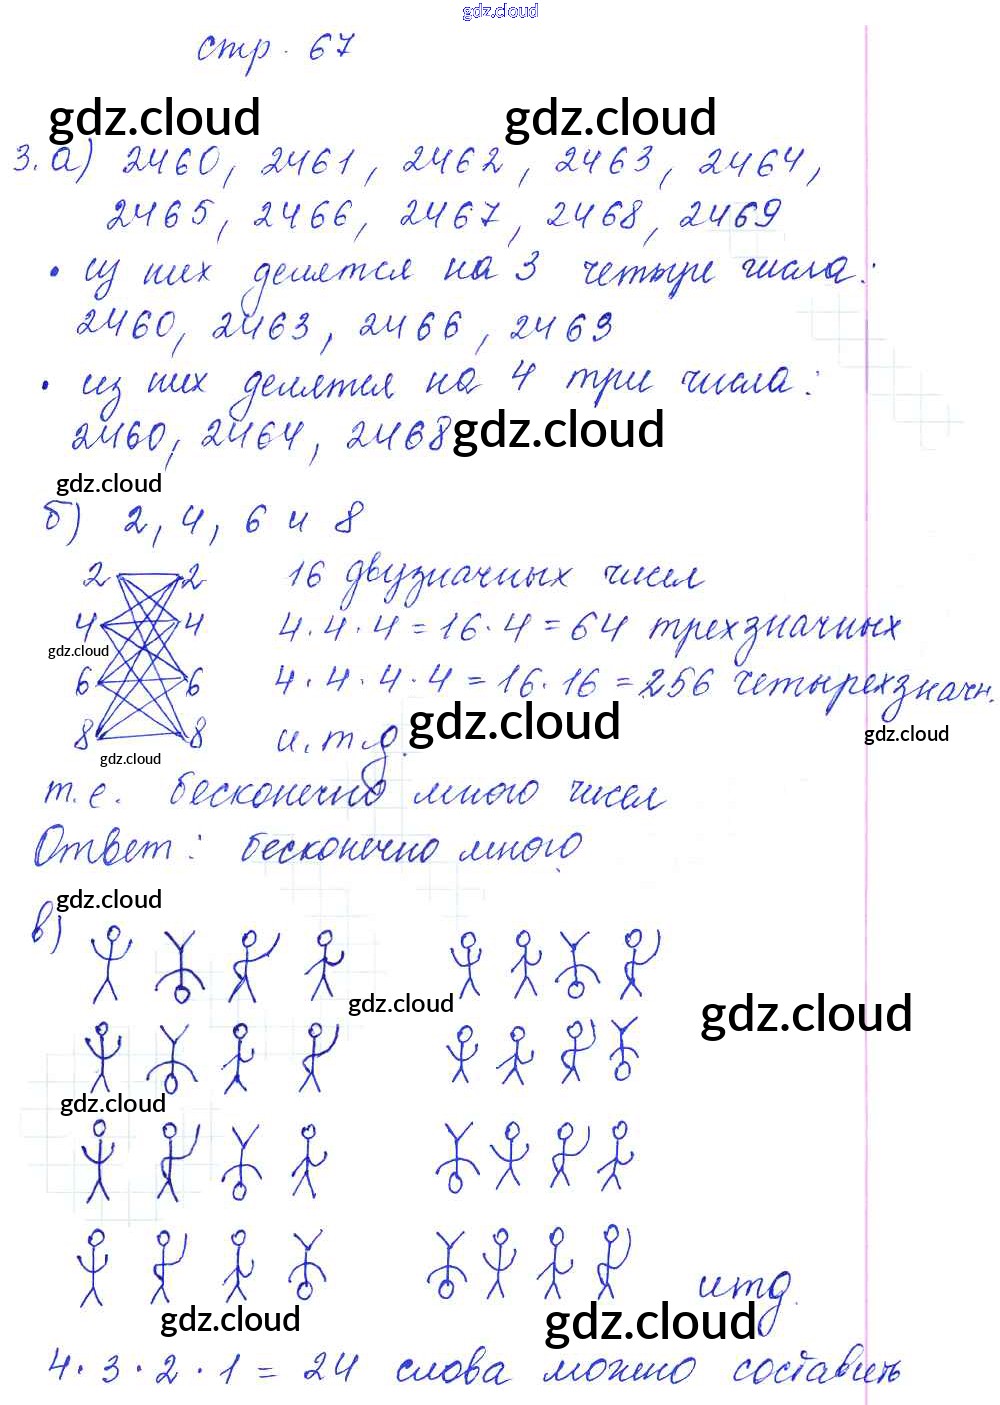 gdz.cloud
стр. 67
gdz.cloud gdz.cloud
3. а) 2460, 2461, 2462, 2463, 2464,
2465, 2466, 2467, 2468, 2469
• из них делятся на 3 четыре числа:
2460, 2463, 2466, 2469
• из них делятся на 4 три числа:
2460, 2464, 2468 gdz.cloud
gdz.cloud
б) 2, 4, 6 и 8
2 2 16 двузначных чисел
4 4 4·4·4=16·4=64 трехзначных
gdz.cloud
6 6 4·4·4·4=16·16=256 четырехзначн.
8 8 и.т.д. gdz.cloud gdz.cloud
gdz.cloud
т.е. бесконечно много чисел
Ответ: бесконечно много
gdz.cloud
в)
gdz.cloud gdz.cloud
gdz.cloud
итд.
gdz.cloud gdz.cloud
4·3·2·1=24 слова можно составить